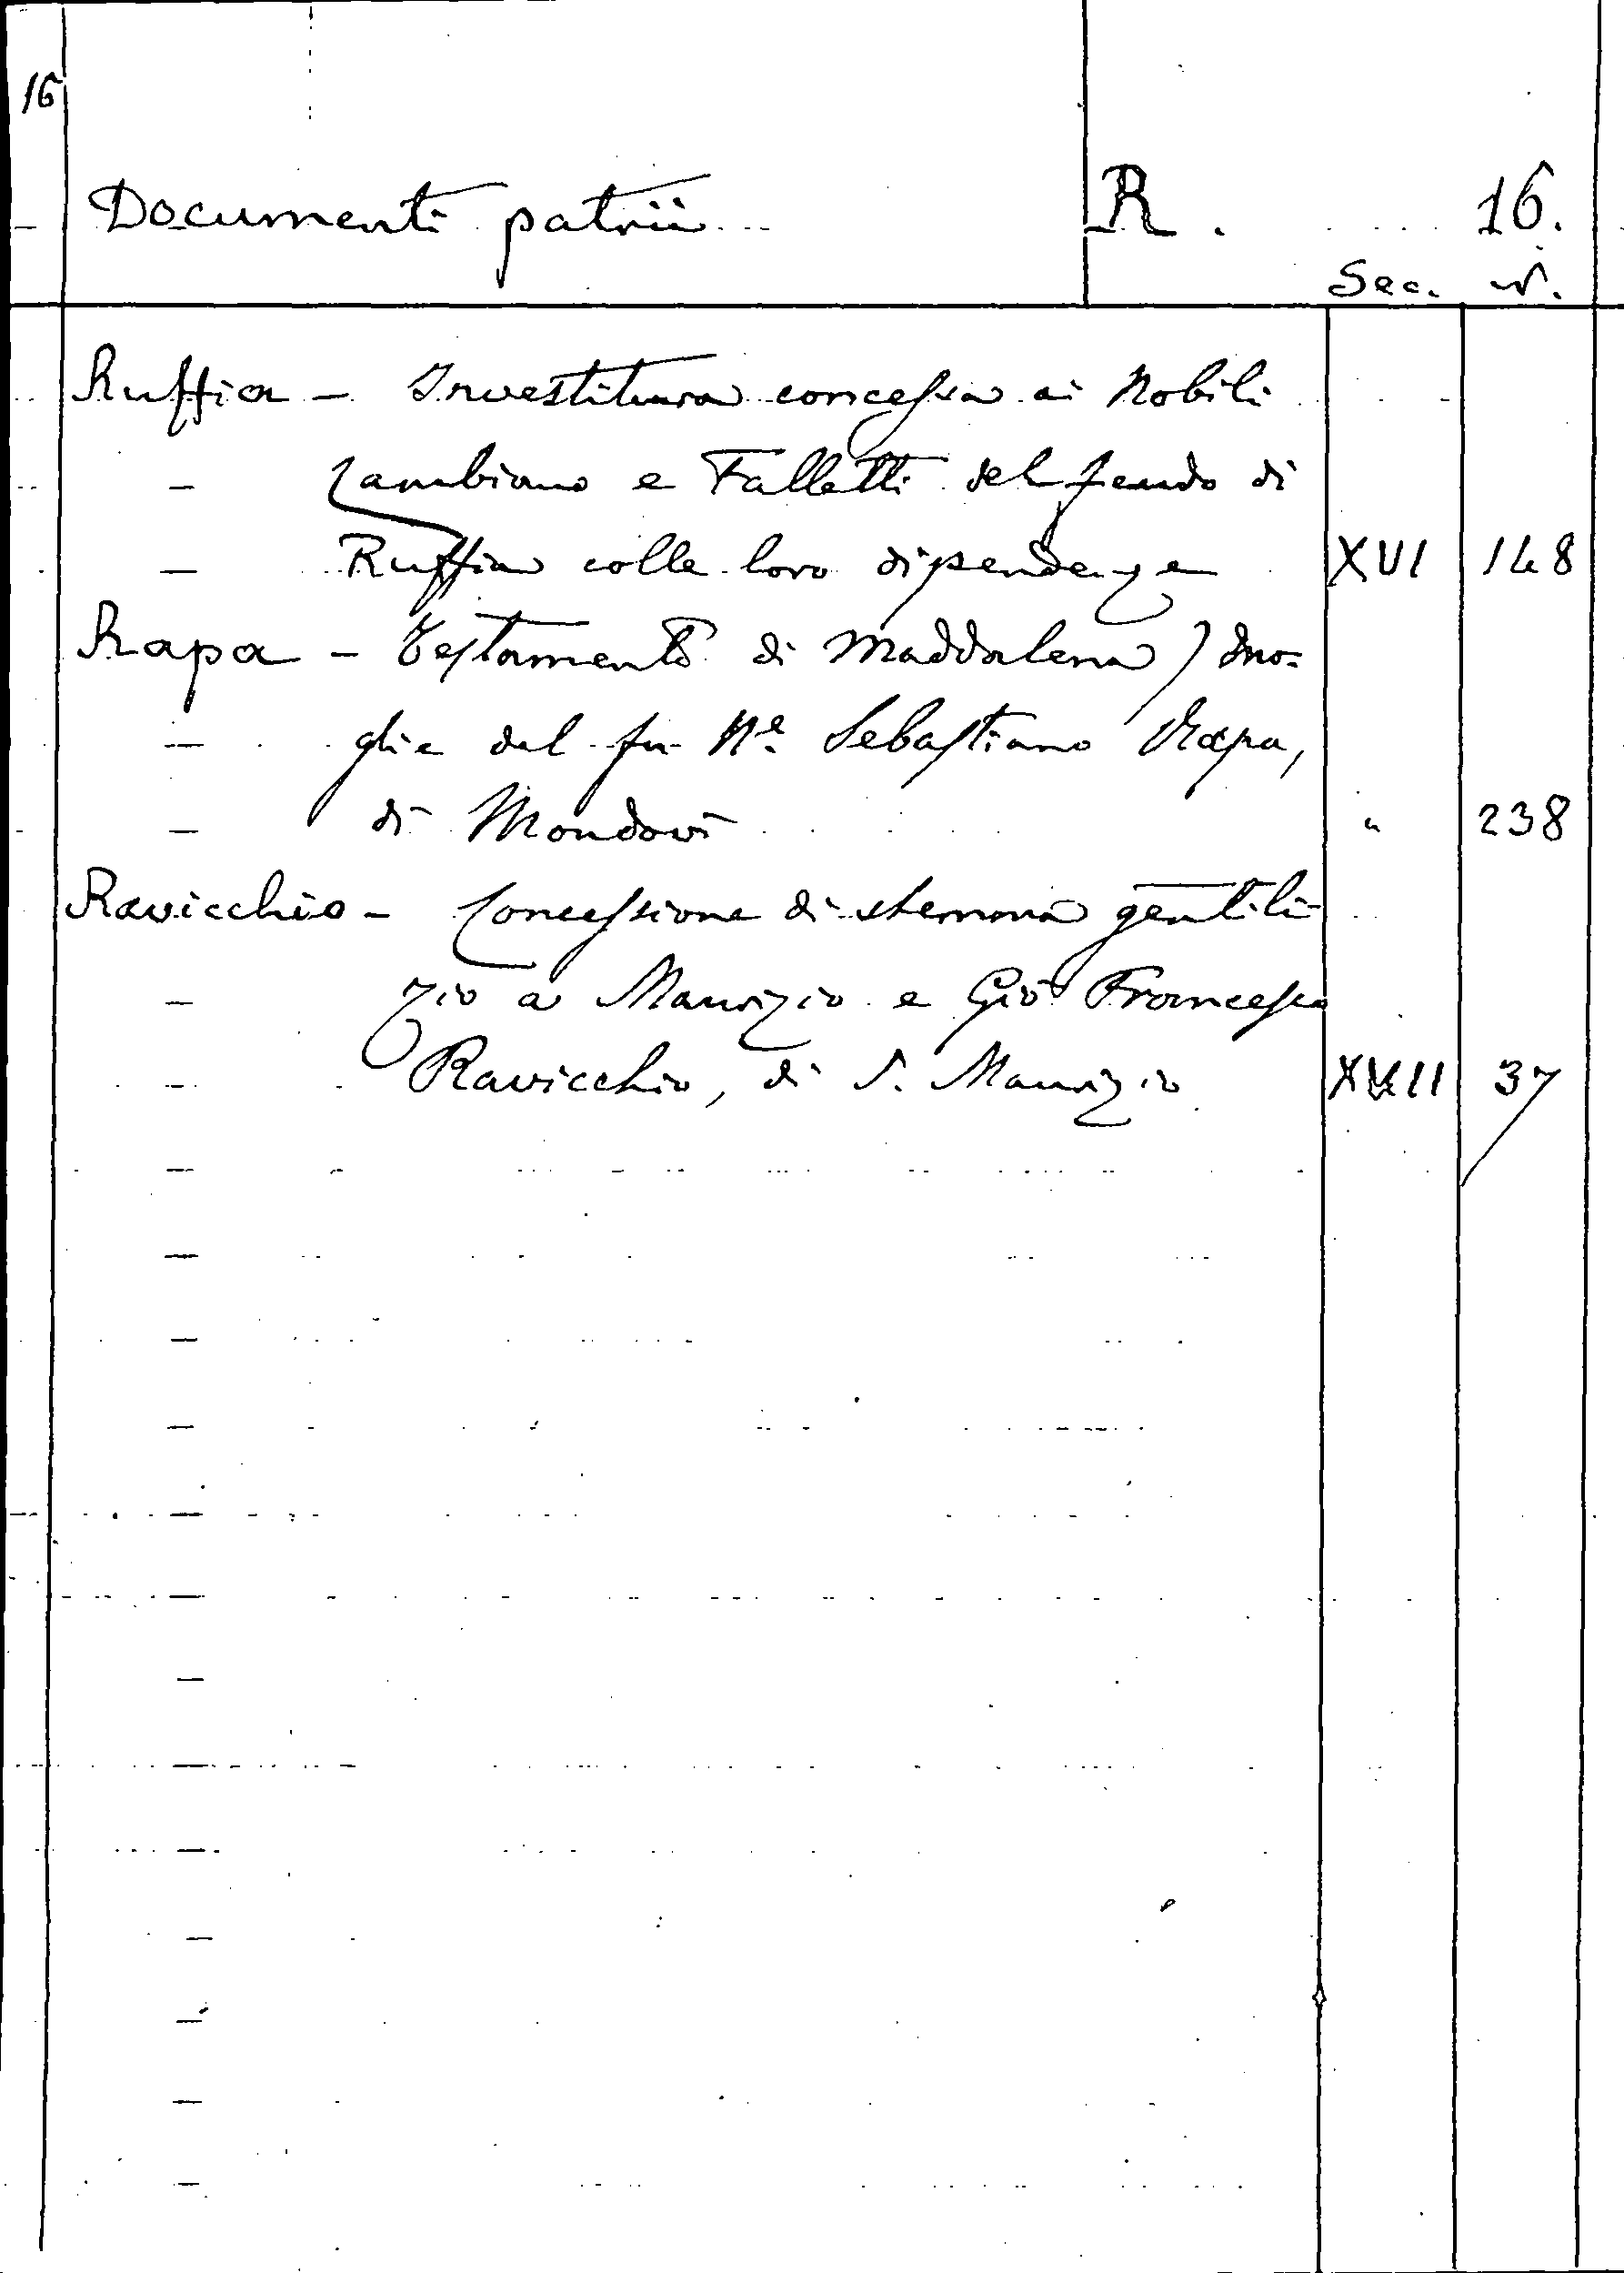 16
Documenti patrii R. 16.
Sec. N.
Ruffia - Investitura concessa ai Nobili
Cambiano e Falletti del feudo di
Ruffia colle loro dipendenze XVI 148
Rapa - Testamento di Maddalena, mo-
glie del fu Ne. Sebastiano Rapa,
di Mondovì " 238
Ravicchio - Concessione di stemma gentili-
zio a Maurizio e Gio Francesco
Ravicchio, di S. Maurizio XVII 37